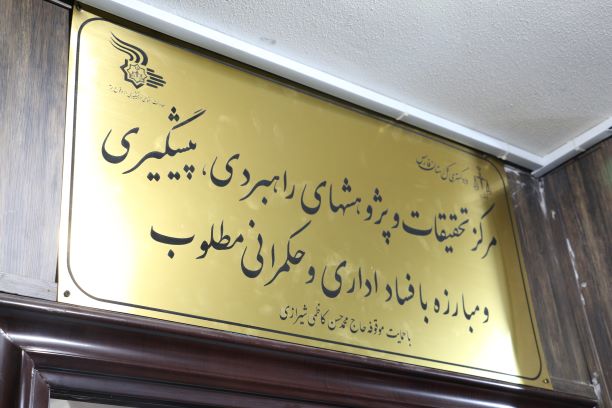 دادگستری کل استان فارس
مرکز تحقیقات و پژوهشهای راهبردی، پیشگیری
و مبارزه با فساد اداری و حکمرانی مطلوب
با حمایت موقوفه حاج محمدحسن کاظمی شیرازی